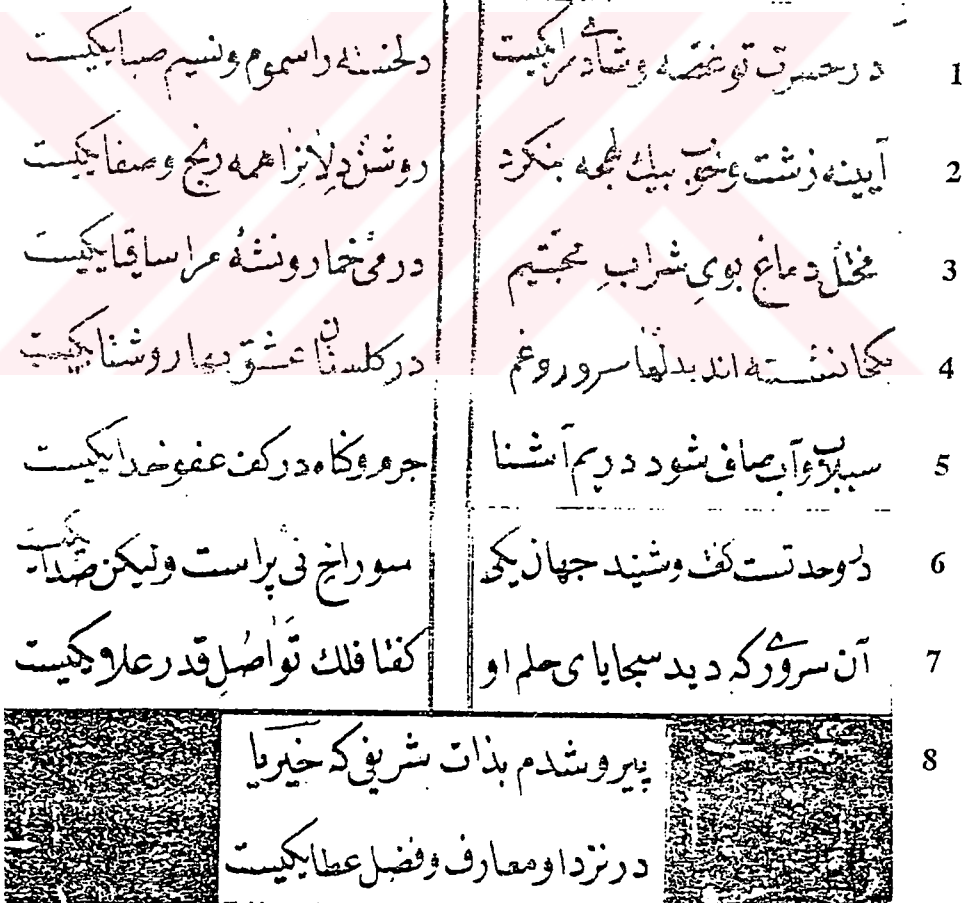 در حسرت تو غصه و شادی مرا یکیست دلخسته را سموم و نسیم صبا یکیست 1
آیینه زشت و خوب بیك نکرد روشن دلانرا همه رنج و صفا یکیست 2
مختل دماغ بوی شراب در می خمار و نشئه مرا ساقیا یکیست 3
یکجا نشسته اند بدلها سرور و غم در کلستان عشق بها یکیست 4
سیلاب و آب صاف شود در یم آشنا جرم و کناه در کف عفو خدا یکیست 5
کفت و شنید جهان یکی سوراخ نی پر است ولیکن صدا یکیست 6
آن سروری که دید سجایای حلم او کفتا فلك تواصل قدر علا یکیست 7
پیرو شدم بذات شریفی که خیریا 8
در نزد او معارف و فضل عطا یکیست